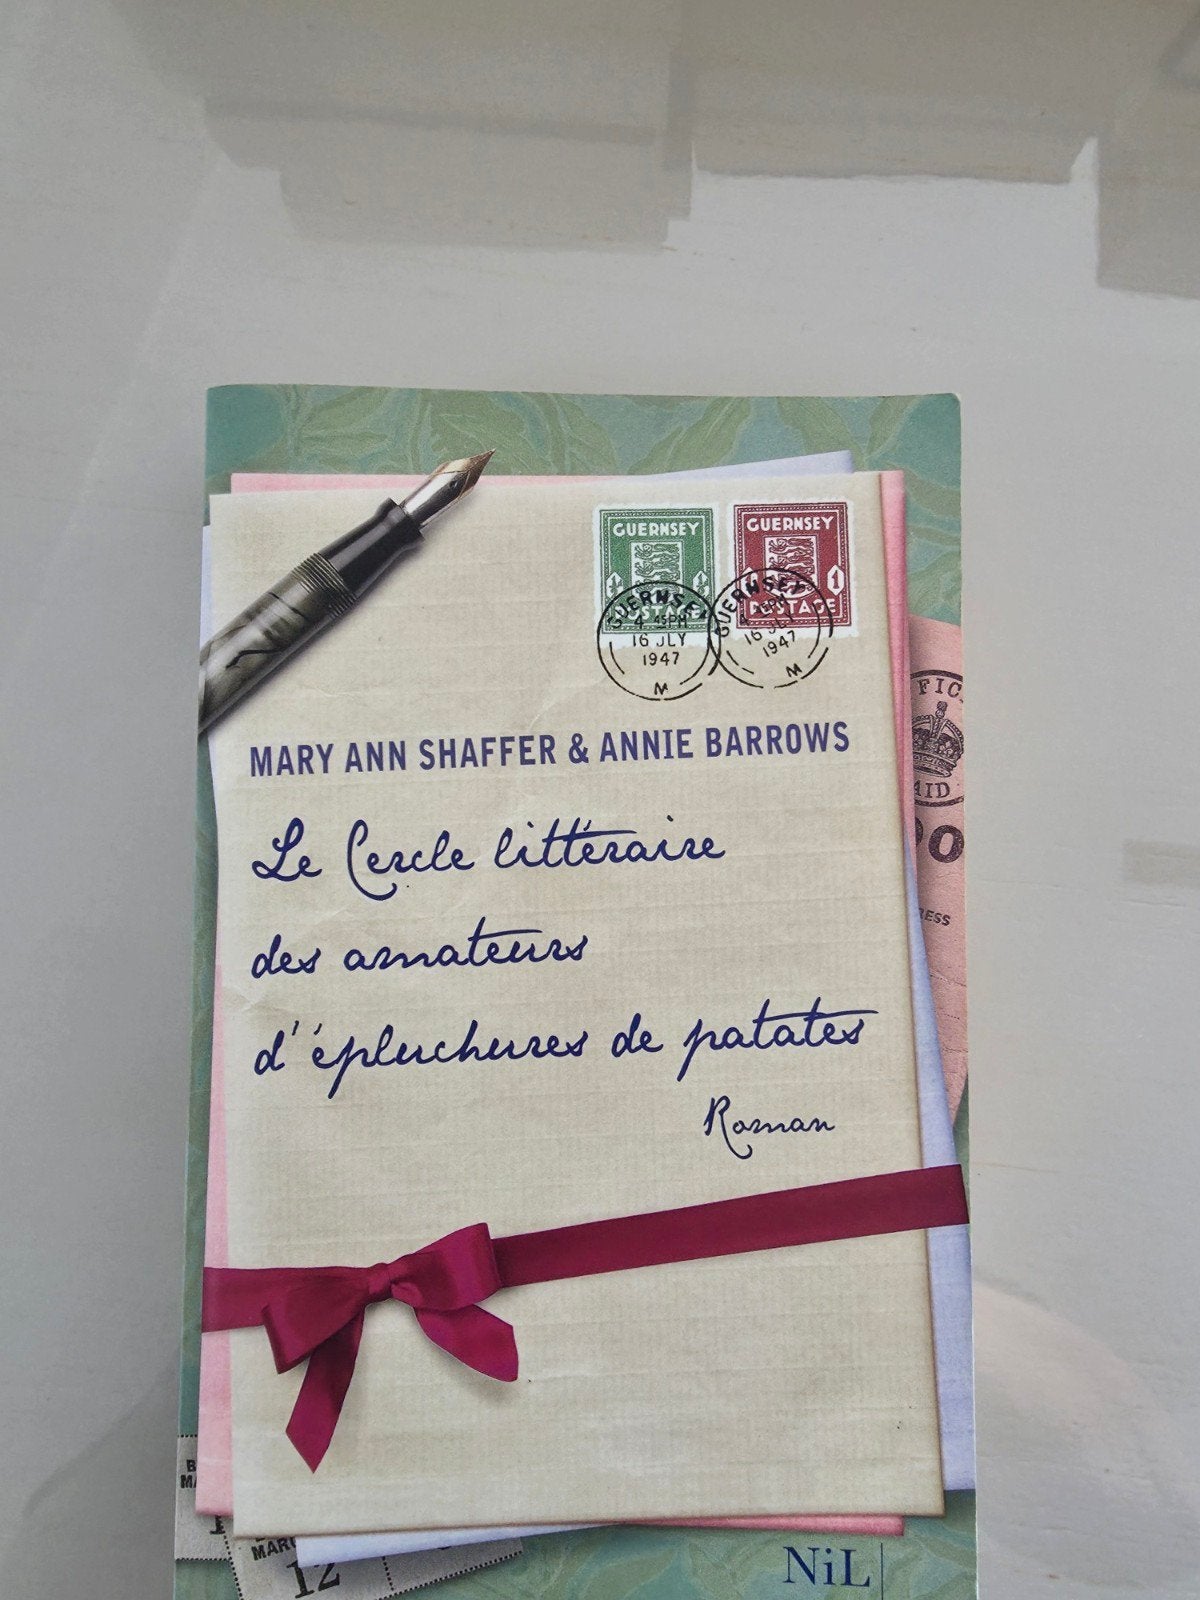 GUERNSEY
POSTAGE
GUERNSEY
1
POSTAGE
GUERNSEY
4 45PM
16 JLY
1947
M
GUERNSEY
16 JLY
1947
M
MARY ANN SHAFFER & ANNIE BARROWS
Le Cercle littéraire
des amateurs
d'épluchures de patates
Roman
FIC
AID
00
RESS
B
MA
MAR
12
NiL